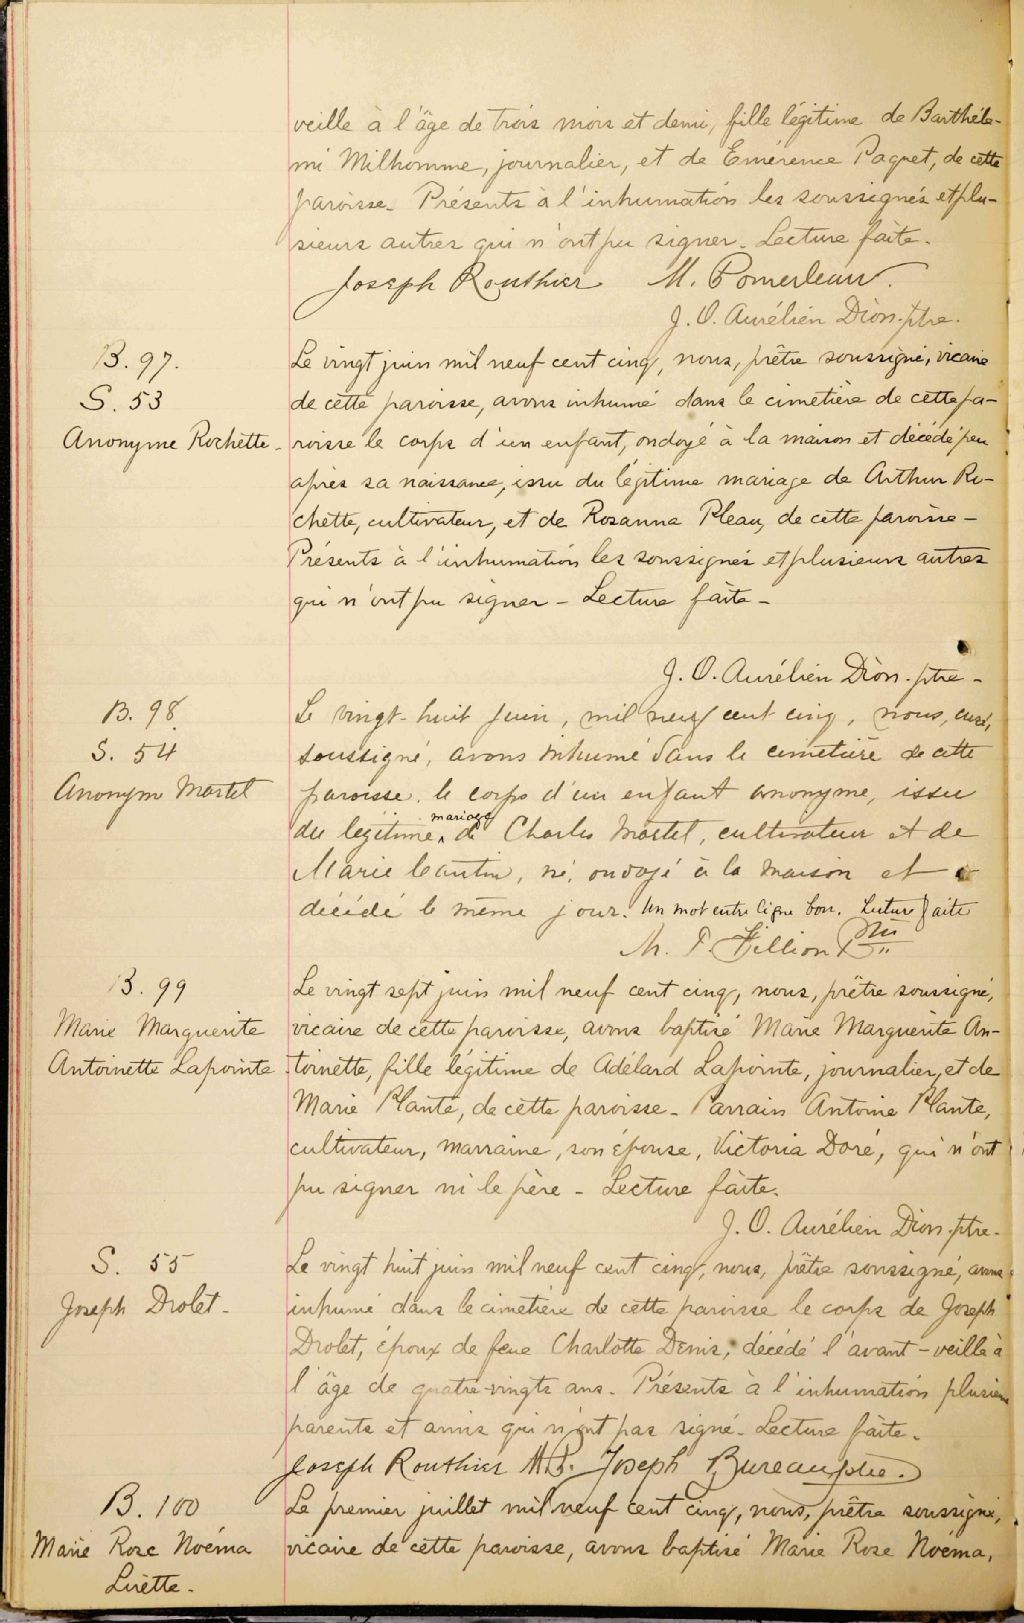 veille à l'âge de trois mois et demi, fille légitime de Barthéle-
mi Milhomme, journalier, et de Emérence Paquet, de cette
paroisse_ Présents à l'inhumation les soussignés et plu-
sieurs autres qui n'ont pu signer_ Lecture faite.
Joseph Routhier M. Pomerleau.
J. O. Aurélien Dion. ptre.
B. 97.
S. 53
Anonyme Rochette_
Le vingt juin mil neuf cent cinq, nous, prêtre soussigné, vicaire
de cette paroisse, avons inhumé dans le cimetière de cette pa-
roisse le corps d'un enfant, ondoyé à la maison et décédé peu
après sa naissance, issu du légitime mariage de Arthur Ro-
chette, cultivateur, et de Rosanna Pleau, de cette paroisse_
Présents à l'inhumation les soussignés et plusieurs autres
qui n'ont pu signer_ Lecture faite_
J. O. Aurélien Dion. ptre_
B. 98
S. 54
Anonym Martel
Le vingt-huit juin, mil neuf cent cinq, nous, curé,
soussigné, avons inhumé dans le cimetière de cette
paroisse, le corps d'un enfant anonyme, issu
mariage
du légitime de Charles Martel, cultivateur et de
Marie Cantin, né, ondoyé à la maison et
décédé le même jour. Un mot entre ligne bon. Lecture faite
M. F. Fillion Ptre
B. 99
Marie Marguerite
Antoinette Lapointe
Le vingt sept juin mil neuf cent cinq, nous, prêtre soussigné,
vicaire de cette paroisse, avons baptisé Marie Marguerite An-
toinette, fille légitime de Adélard Lapointe, journalier, et de
Marie Plante, de cette paroisse_ Parrain Antoine Plante,
cultivateur, marraine, son épouse, Victoria Doré, qui n'ont
pu signer ni le père_ Lecture faite.
J. O. Aurélien Dion. ptre.
S. 55
Joseph Drolet_
Le vingt huit juin mil neuf cent cinq, nous, prêtre soussigné, avons
inhumé dans le cimetière de cette paroisse le corps de Joseph
Drolet, époux de feue Charlotte Denis, décédé l'avant-veille à
l'âge de quatre-vingts ans_ Présents à l'inhumation plusieurs
parents et amis qui n'ont pas signé_ Lecture faite_
Joseph Routhier M.P. Joseph Bureau ptre.
B. 100
Marie Rose Noéma
Lirette_
Le premier juillet mil neuf cent cinq, nous, prêtre soussigné,
vicaire de cette paroisse, avons baptisé Marie Rose Noéma,